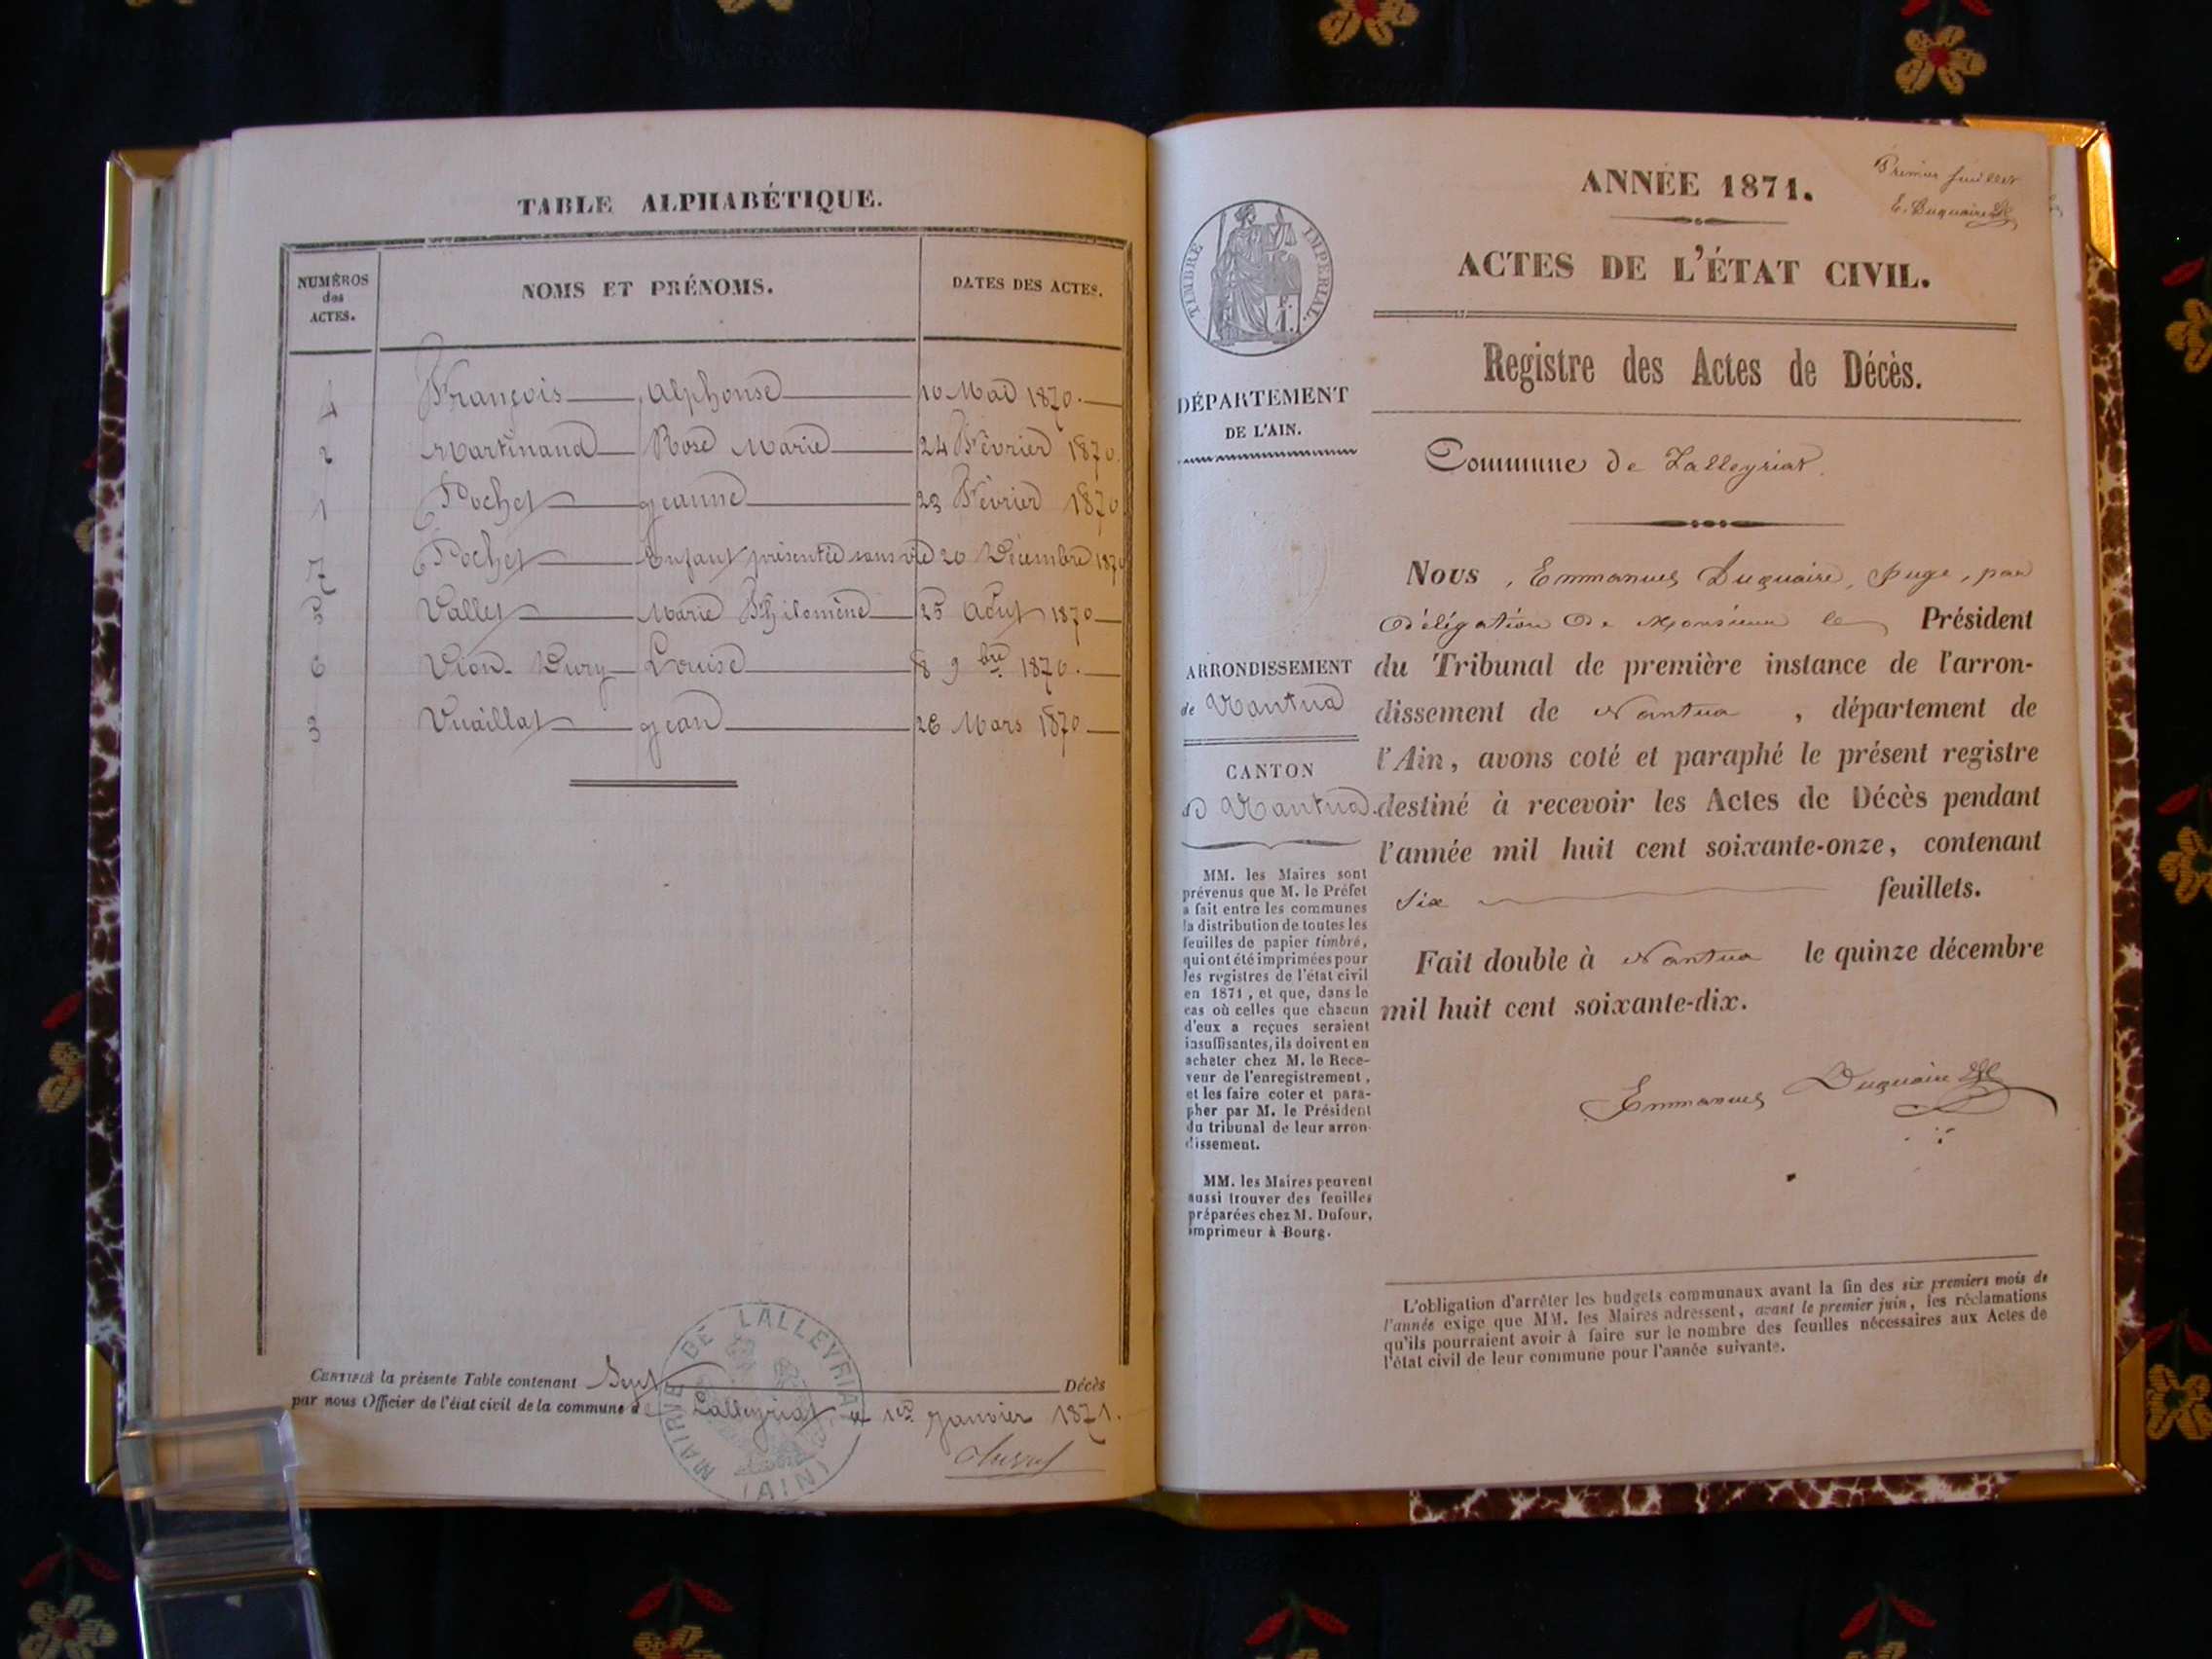 TABLE ALPHABÉTIQUE.
NUMÉROS
des
ACTES.
NOMS ET PRÉNOMS.
DATES DES ACTES.
4 François Alphonse 10 Mai 1870.
2 Martinand Rose Marie 24 Février 1870.
1 Pochet Jeanne 23 Février 1870
7 Pochet Enfant présentée sans vie 20 Décembre 1870
5 Vallet Marie Philomène 25 Août 1870
6 Vion-Dury Louise 8 9bre 1870.
3 Vuaillat Jean 26 Mars 1870
CERTIFIÉ la présente Table contenant Sept Décès
par nous Officier de l'état civil de la commune de Lalleyriat le 1er Janvier 1871.
MAIRIE DE LALLEYRIAT
(AIN)
Premier feuillet
E. Duquaire
ANNÉE 1871.
ACTES DE L'ÉTAT CIVIL.
TIMBRE IMPÉRIAL.
Registre des Actes de Décès.
DÉPARTEMENT
DE L'AIN.
Commune de Lalleyriat.
Nous, Emmanuel Duquaire, Juge, par
délégation de Monsieur le Président
du Tribunal de première instance de l'arron-
dissement de Nantua, département de
l'Ain, avons coté et paraphé le présent registre
destiné à recevoir les Actes de Décès pendant
l'année mil huit cent soixante-onze, contenant
Six feuillets.
Fait double à Nantua le quinze décembre
mil huit cent soixante-dix.
Emmanuel Duquaire
ARRONDISSEMENT
de Nantua
CANTON
de Nantua.
MM. les Maires sont
prévenus que M. le Préfet
a fait entre les communes
la distribution de toutes les
feuilles de papier timbré,
qui ont été imprimées pour
les registres de l'état civil
en 1871, et que, dans le
cas où celles que chacun
d'eux a reçues seraient
insuffisantes, ils doivent en
acheter chez M. le Rece-
veur de l'enregistrement,
et les faire coter et para-
pher par M. le Président
du tribunal de leur arron-
dissement.
MM. les Maires peuvent
aussi trouver des feuilles
préparées chez M. Dufour,
imprimeur à Bourg.
L'obligation d'arrêter les budgets communaux avant la fin des six premiers mois de
l'année exige que MM. les Maires adressent, avant le premier juin, les réclamations
qu'ils pourraient avoir à faire sur le nombre des feuilles nécessaires aux Actes de
l'état civil de leur commune pour l'année suivante.